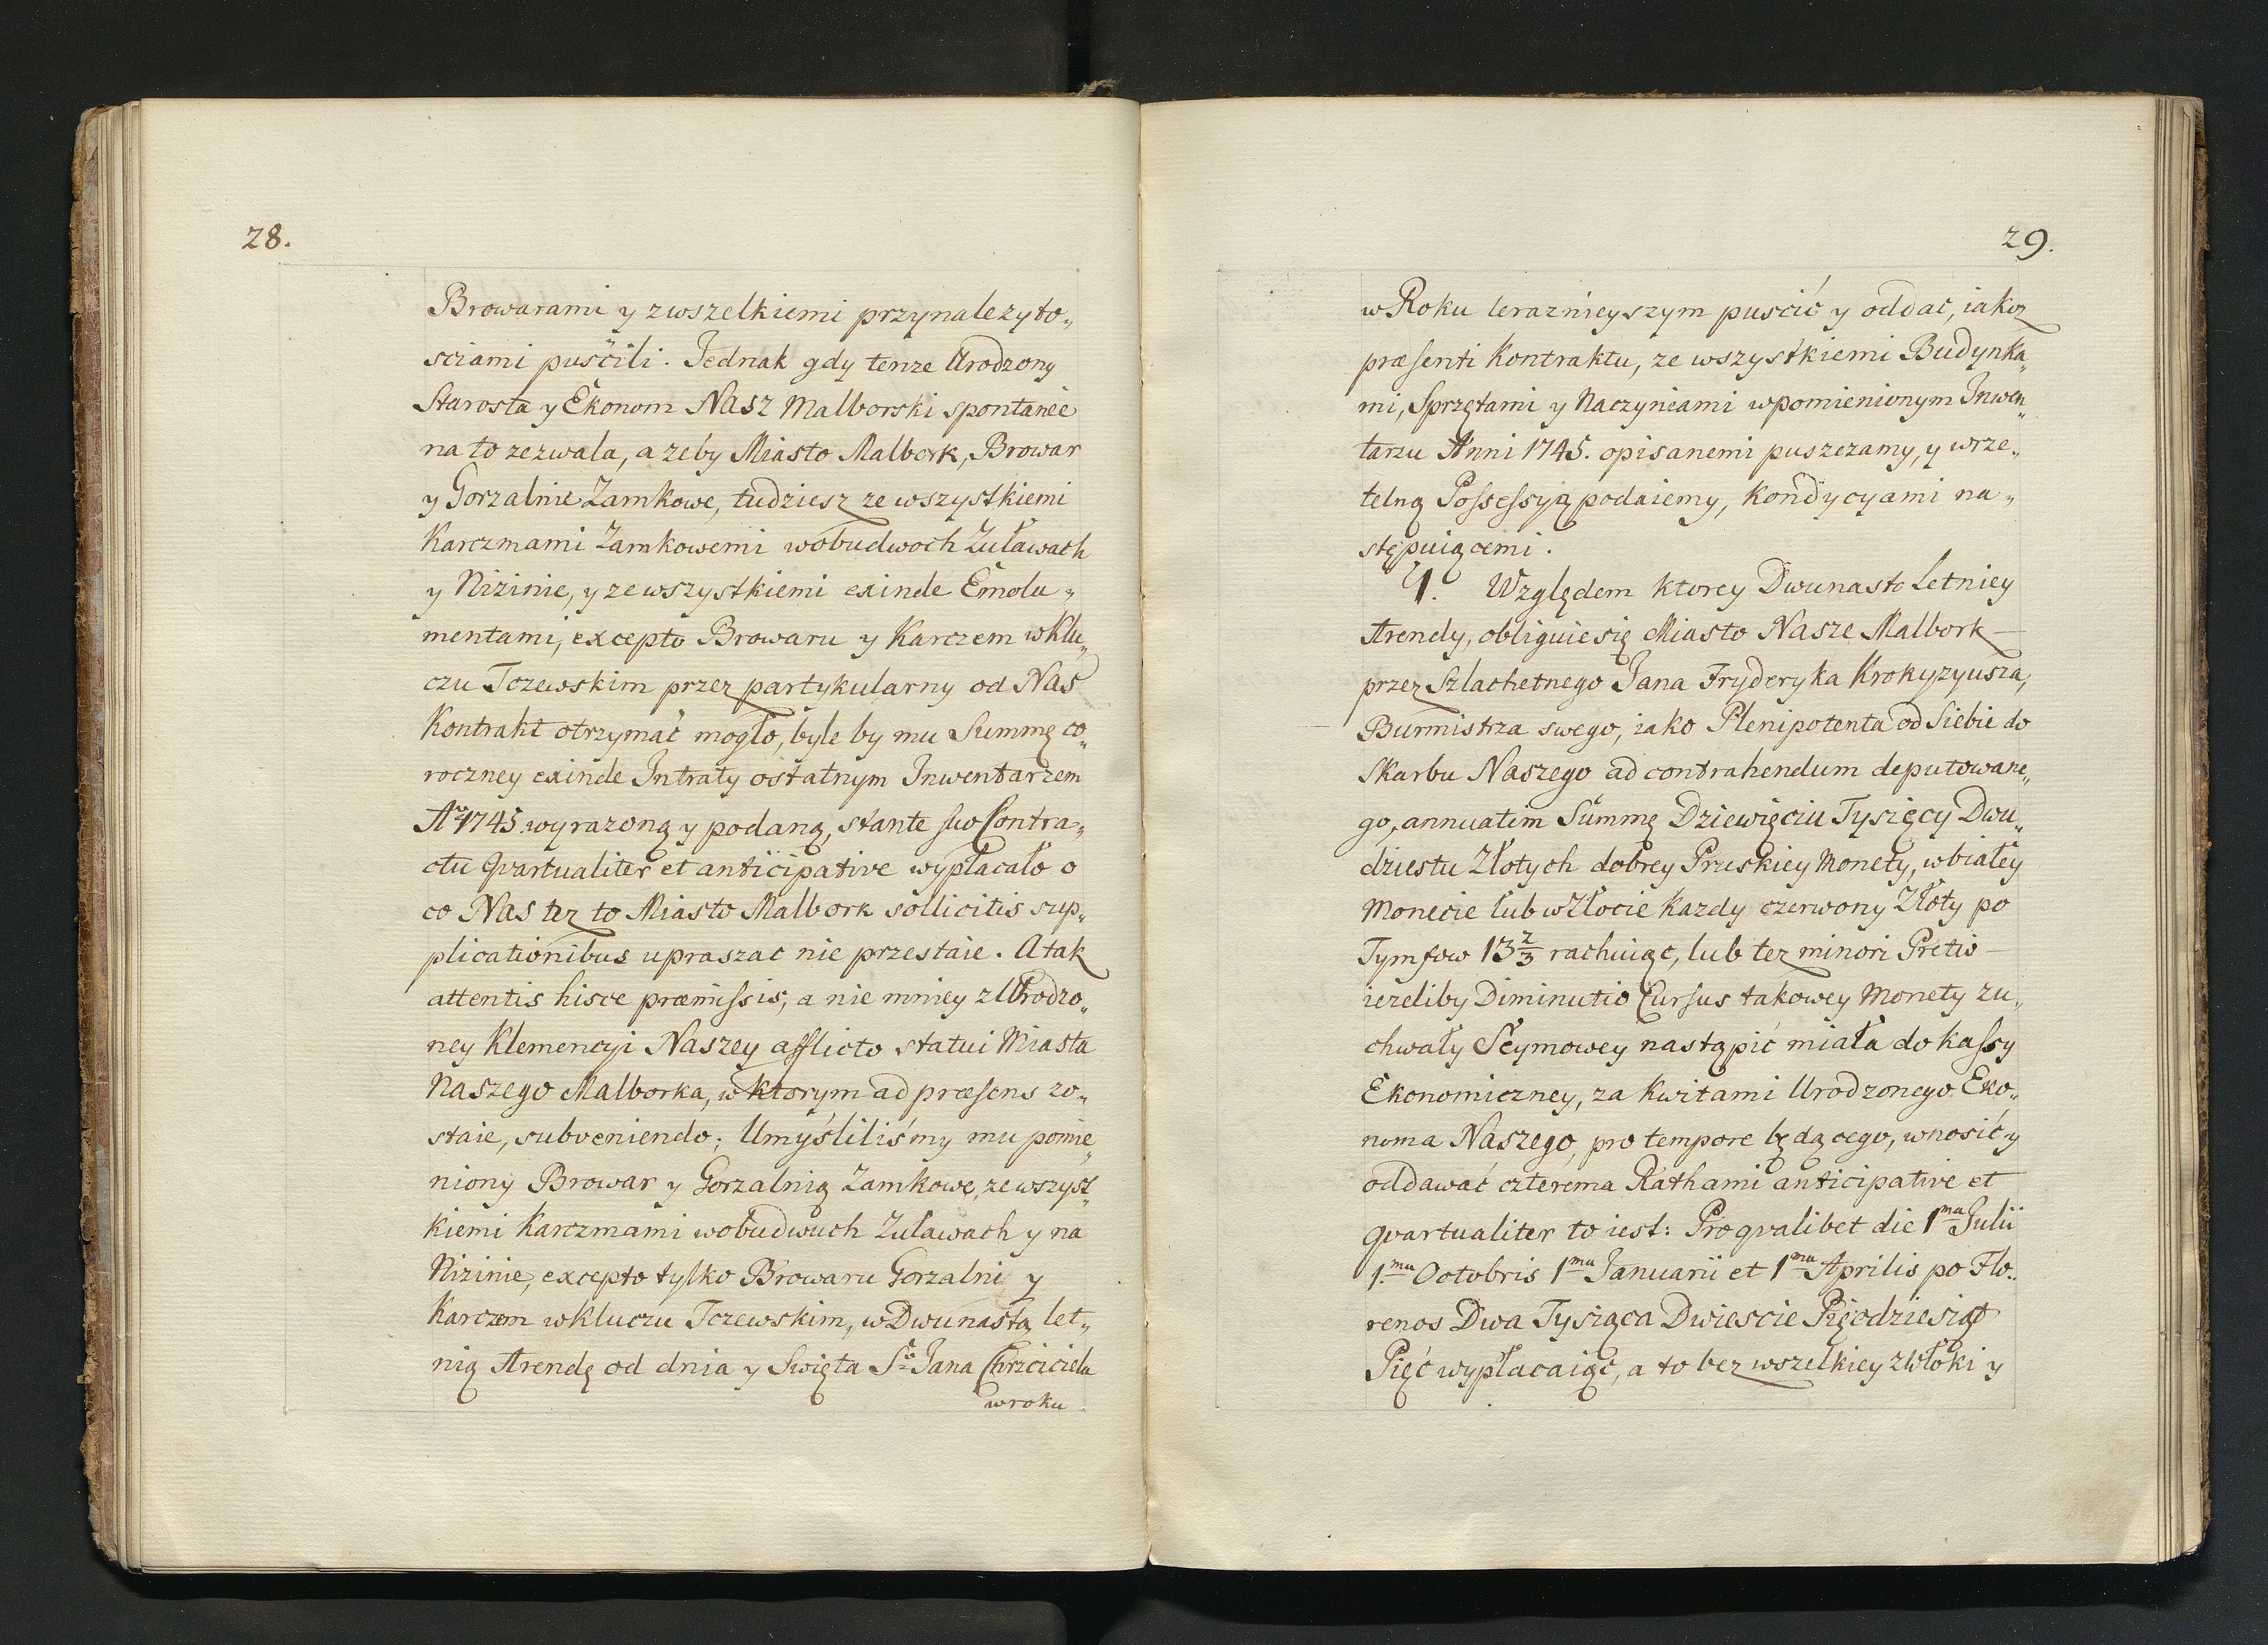 28.
Browarami y zwszelkiemi przynalezyto„
sciami puścili. Jednak gdy tenze Urodzony
Starosta y Ekonom Nasz Malborski spontanee
na to zezwala, a zeby Miasto Malbork, Browar
y Gorzalnie Zamkowe, tudziesz ze wszystkiemi
Karczmami Zamkowemi wobudwoch Zuławach
y Nizinie, y ze wszystkiemi exinde Emolu„
mentami, excepto Browaru y Karczem w Klu„
czu Tczewskim przez partykularny od Nas
Kontrakt otrzymać mogło, byle by mu Summę co„
roczney exinde Intraty ostatnym Inwentarzem
Aº 1745. wyrazoną y podaną, stante suo Contra„
ctu qvartualiter et anticipative wypłacało o
co Nas tez to Miasto Malbork sollicitis sup„
plicationibus upraszac nie przestaie. A tak
attentis hisce præmissis, a nie mniey z Urodzo„
ney Klemencyi Naszey afflicto statui Miasta
Naszego Malborka, w ktorym ad præsens zo„
staie, subveniendo; Umyśliliśmy mu pomie„
niony Browar y Gorzalnią Zamkowę, ze wszyst„
kiemi Karczmami wobudwuch Zuławach y na
Nizinie, excepto tylko Browaru Gorzalni y
Karczem w Kluczu Tczewskim, w Dwunasta let„
nią Arendę od dnia y Swięta Sº Jana Chrzciciela
w roku
29.
w Roku terazńieyszym puścić y oddać, iakoz
præsenti Kontraktu, ze wszystkiemi Budynka„
mi, Sprzętami y Naczyniami wpomienionym Inwen„
tarzu Anni 1745. opisanemi puszczamy, y wrze„
telną Possessyą podaiemy, Kondycyami na„
stępuiącemi.
1. Względem ktorey Dwunasto Letniey
Arendy, obliguie się Miasto Nasze Malbork
przez Szlachetnego Jana Fryderyka Krokyzyusza,
Burmistrza swego, iako Plenipotenta od Siebie do
Skarbu Naszego ad contrahendum deputowane„
go, annuatim Summę Dziewięciu Tysięcy Dwu„
dziestu Złotych dobrey Pruskiey Monety, w białey
Monecie lub w Złocie Kazdy czerwony Złoty po
Tymfow 13 2/3 rachuiąc, lub tez minori Pretio
iezeliby Diminutio Cursus takowey Monety zu„
chwały Seymowey nastąpić miała do Kassy
Ekonomiczney, za Kwitami Urodzonego Eko„
noma Naszego, pro tempore będącego, wnosić y
oddawać czterema Rathami anticipative et
qvartualiter to iest: Pro qvalibet die 1ma Julii
1.ma Octobris 1ma Januarii et 1ma Aprilis po Flo„
renos Dwa Tysiąca Dwiescie Pięcdziesiąt
Pięć wypłacaiąc, a to bez wszelkiey zwłoki y